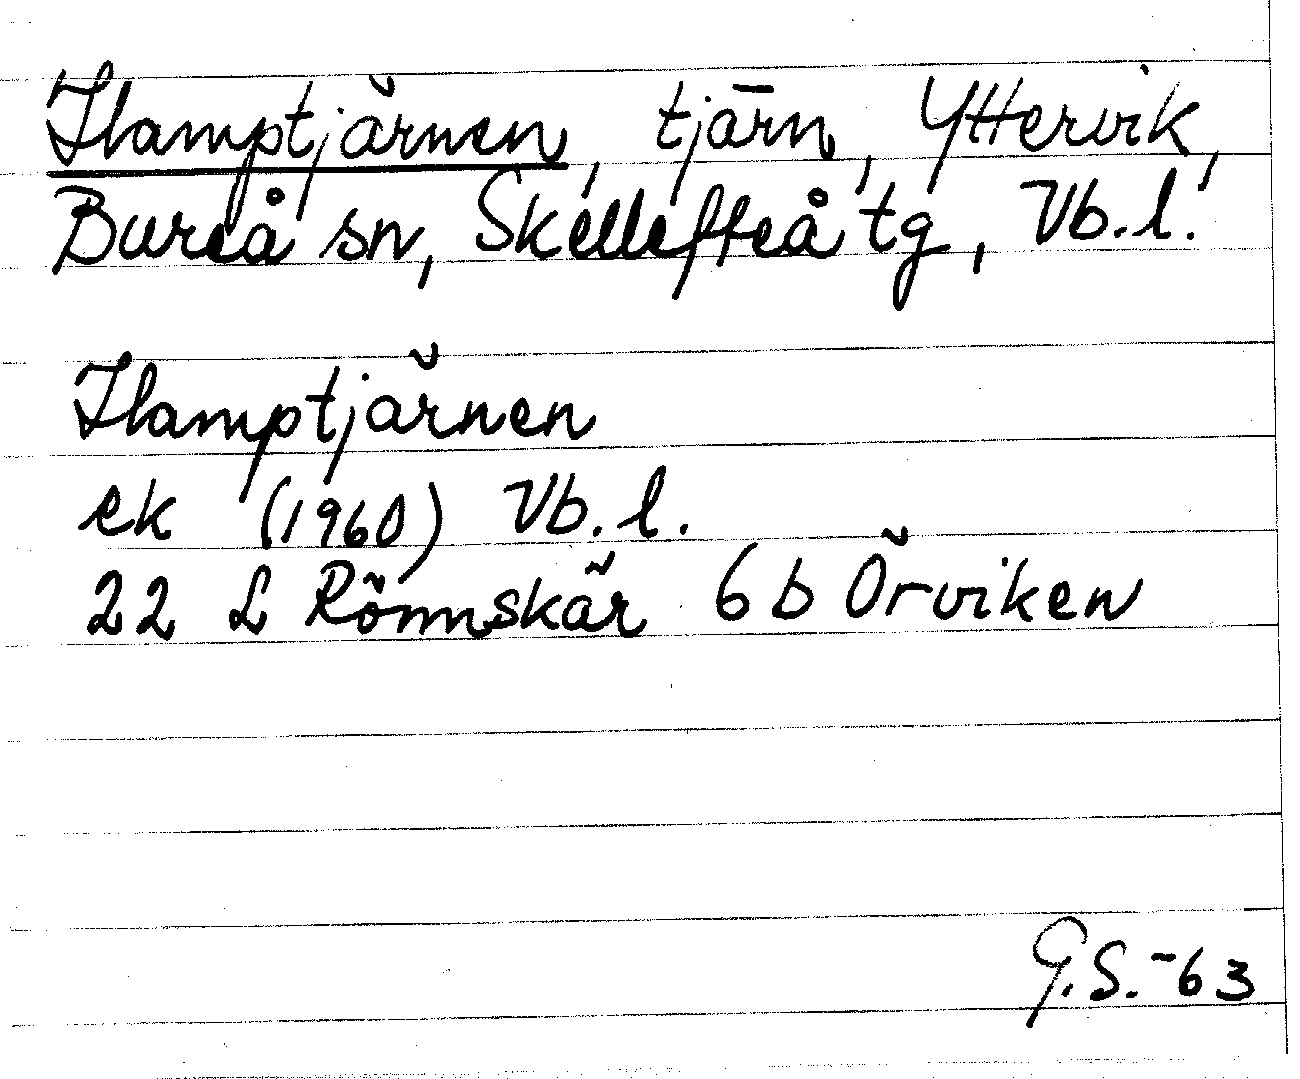 Hamptjärnen, tjärn, Yttervik,
Bureå sn, Skellefteå tg, Vb. l.
Hamptjärnen
ek (1960) Vb. l.
22 L Rönnskär 6 b Örviken
G.S.-63